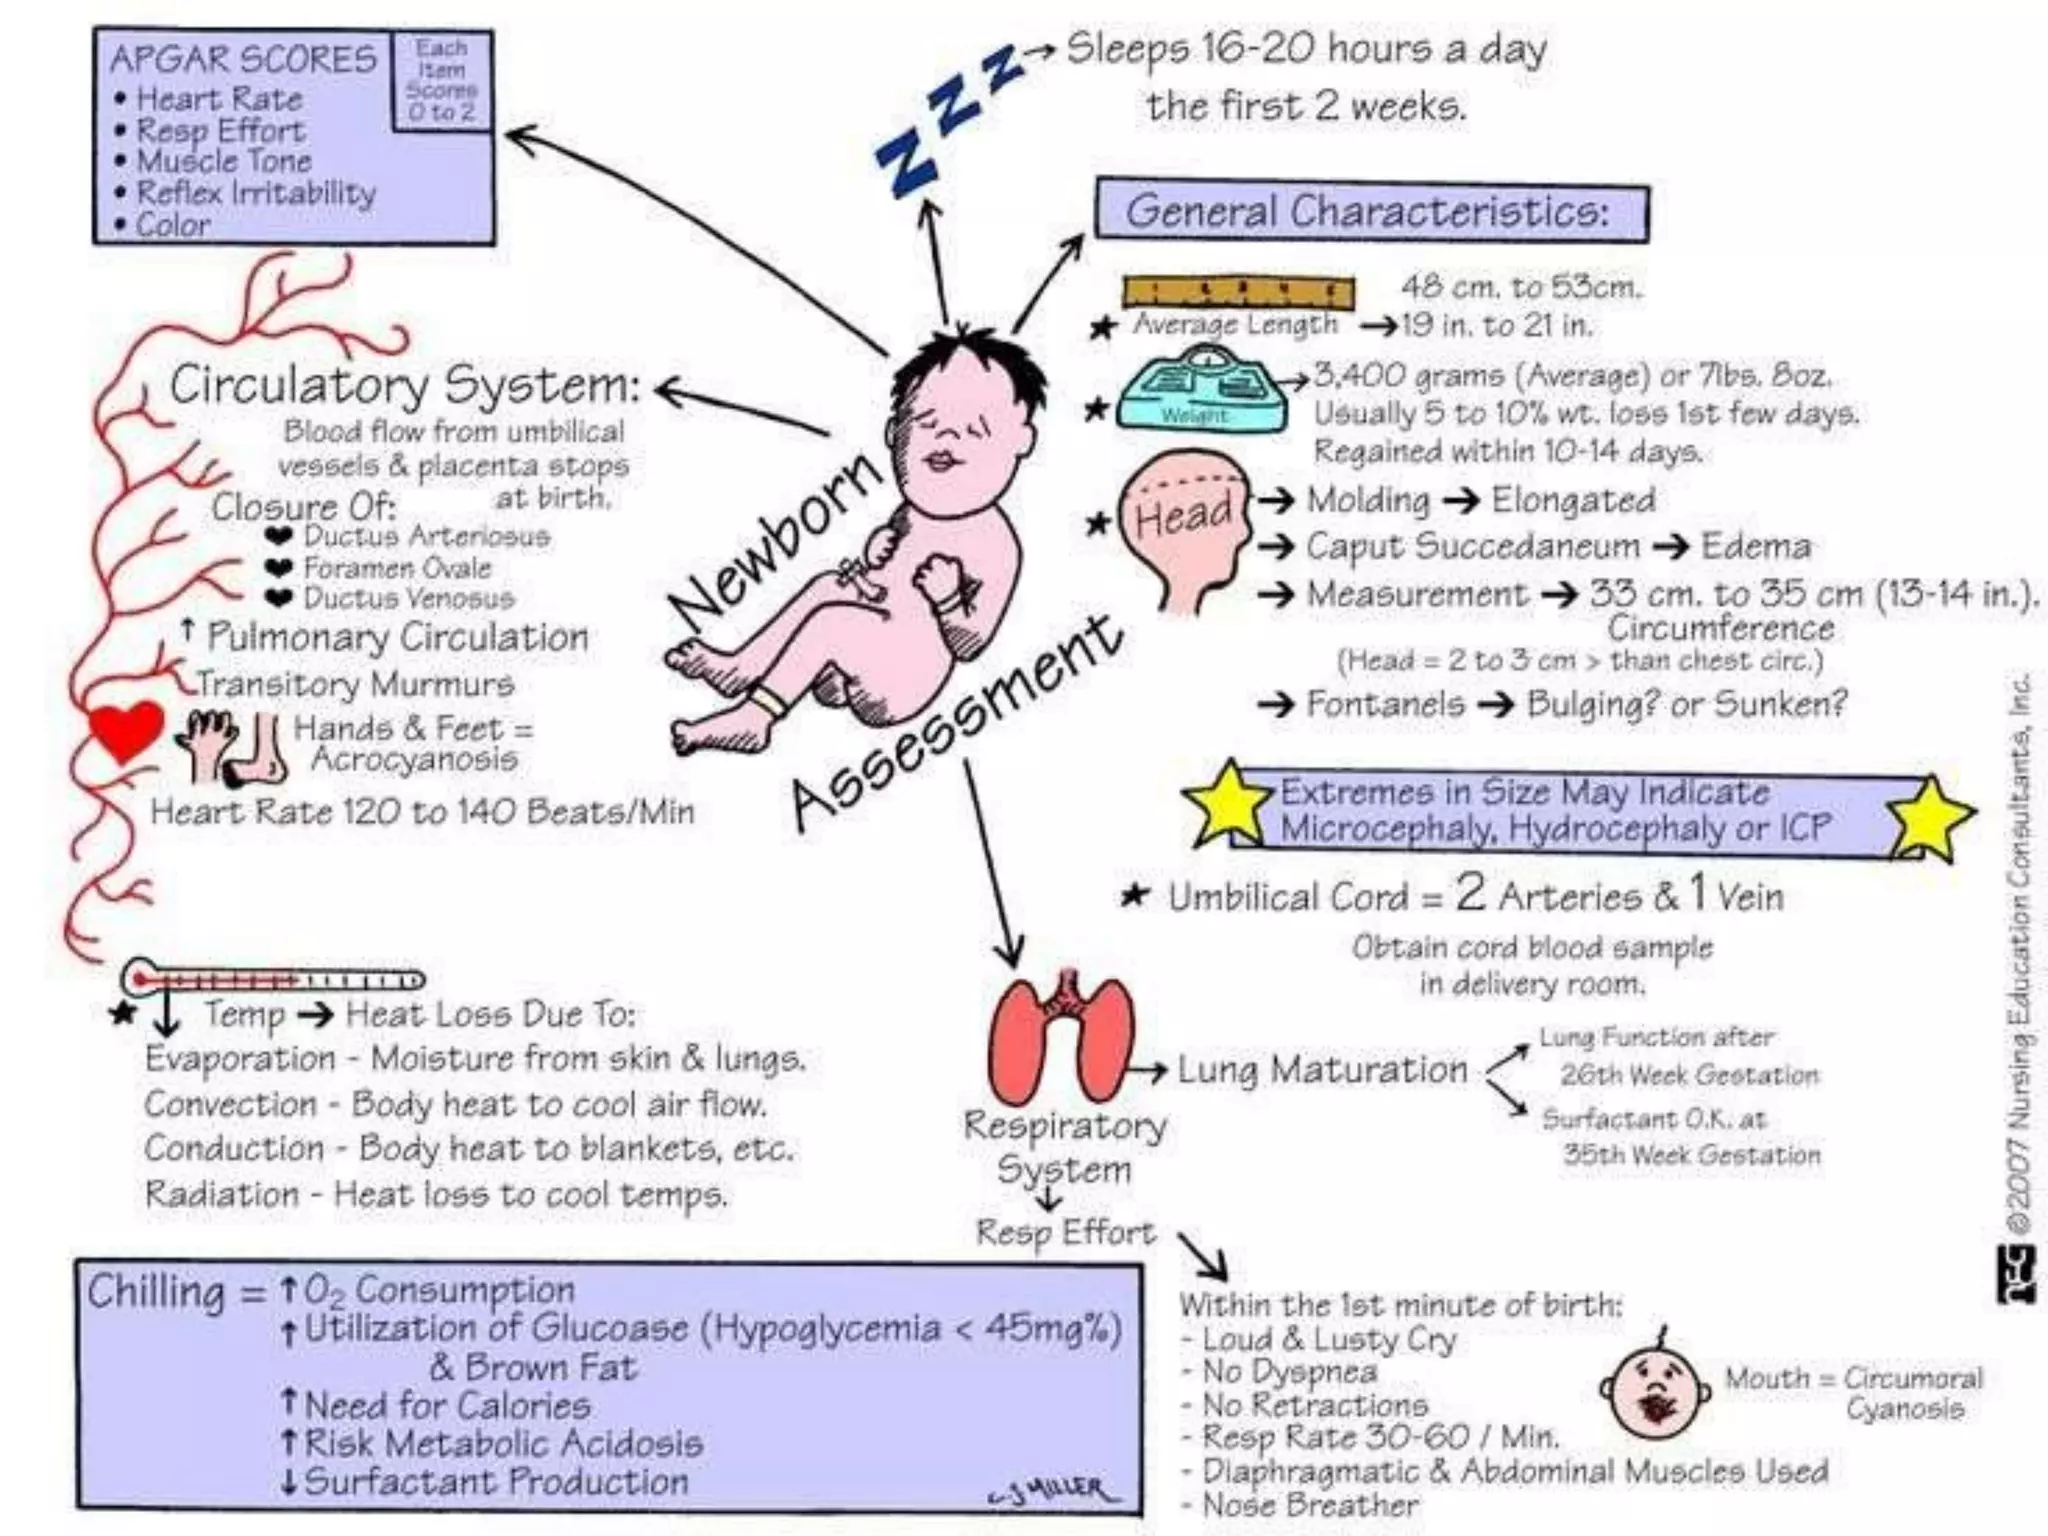 APGAR SCORES
Each
Item
Scores
0 to 2
• Heart Rate
• Resp Effort
• Muscle Tone
• Reflex Irritability
• Color
Z Z Z
→ Sleeps 16-20 hours a day
the first 2 weeks.
General Characteristics:
48 cm. to 53cm.
★ Average Length → 19 in. to 21 in.
★ Weight
→ 3,400 grams (Average) or 7lbs. 8oz.
Usually 5 to 10% wt. loss 1st few days.
Regained within 10-14 days.
★ Head
→ Molding → Elongated
→ Caput Succedaneum → Edema
→ Measurement → 33 cm. to 35 cm (13-14 in.).
Circumference
(Head = 2 to 3 cm > than chest circ.)
→ Fontanels → Bulging? or Sunken?
Extremes in Size May Indicate
Microcephaly, Hydrocephaly or ICP
★ Umbilical Cord = 2 Arteries & 1 Vein
Obtain cord blood sample
in delivery room.
Circulatory System:
Blood flow from umbilical
vessels & placenta stops
at birth.
Closure Of:
♥ Ductus Arteriosus
♥ Foramen Ovale
♥ Ductus Venosus
↑ Pulmonary Circulation
Transitory Murmurs
Hands & Feet =
Acrocyanosis
Heart Rate 120 to 140 Beats/Min
Newborn
Assessment
★ ↓ Temp → Heat Loss Due To:
Evaporation - Moisture from skin & lungs.
Convection - Body heat to cool air flow.
Conduction - Body heat to blankets, etc.
Radiation - Heat loss to cool temps.
Respiratory
System
↓
Resp Effort
→ Lung Maturation
Lung Function after
26th Week Gestation
Surfactant O.K. at
35th Week Gestation
Chilling = ↑ O₂ Consumption
↑ Utilization of Glucoase (Hypoglycemia < 45mg%)
& Brown Fat
↑ Need for Calories
↑ Risk Metabolic Acidosis
↓ Surfactant Production
CJ MILLER
Within the 1st minute of birth:
- Loud & Lusty Cry
- No Dyspnea
- No Retractions
- Resp Rate 30-60 / Min.
- Diaphragmatic & Abdominal Muscles Used
- Nose Breather
Mouth = Circumoral
Cyanosis
©2007 Nursing Education Consultants, Inc.